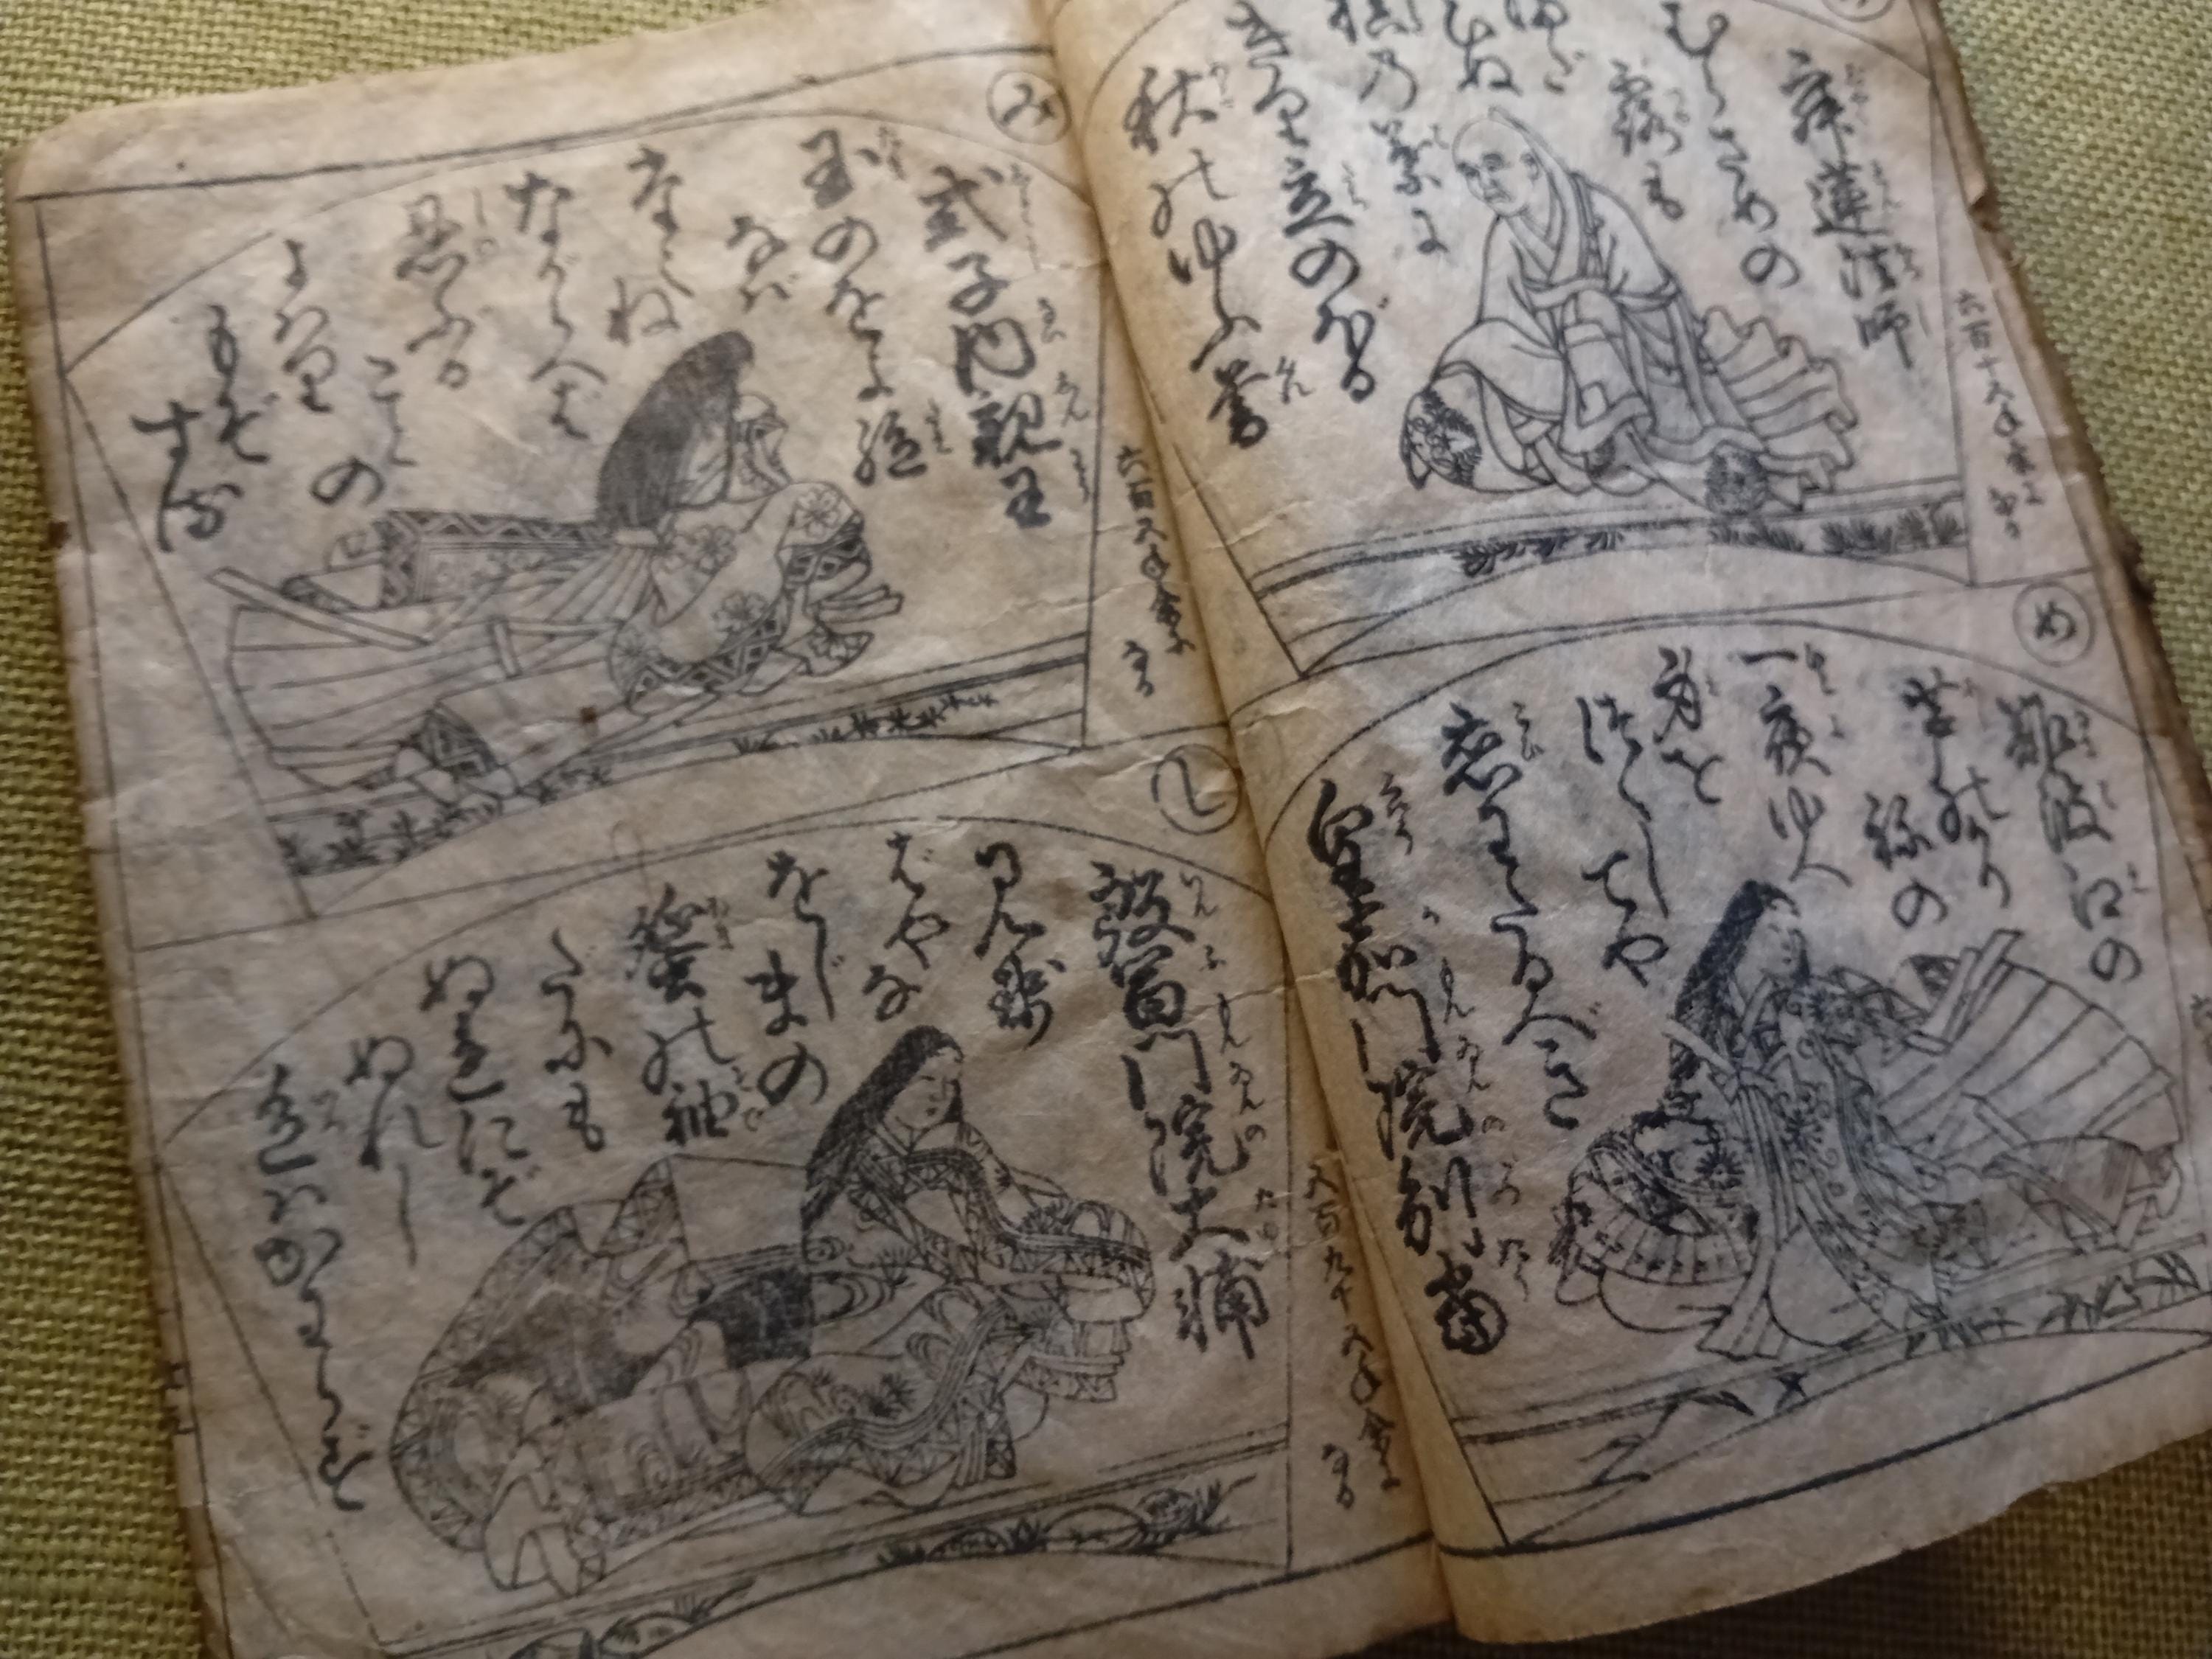 寂蓮法師
むらさめの
露も
まだ
ひぬ
槙乃
葉に
きり立のぼる
秋のゆふ暮
め
難波江の
芦のかり
祢の
一夜ゆへ
身を
つくしてや
恋わたるべき
皇嘉門院別當
み
式子内親王
玉のをよ絶
なば
たえね
ながらへば
忍ぶる
ことの
よはり
もぞ
する
し
殷富門院大輔
見せ
ばやな
をじまの
蜑の袖
だにも
ぬれにぞ
ぬれし
色はかはらず